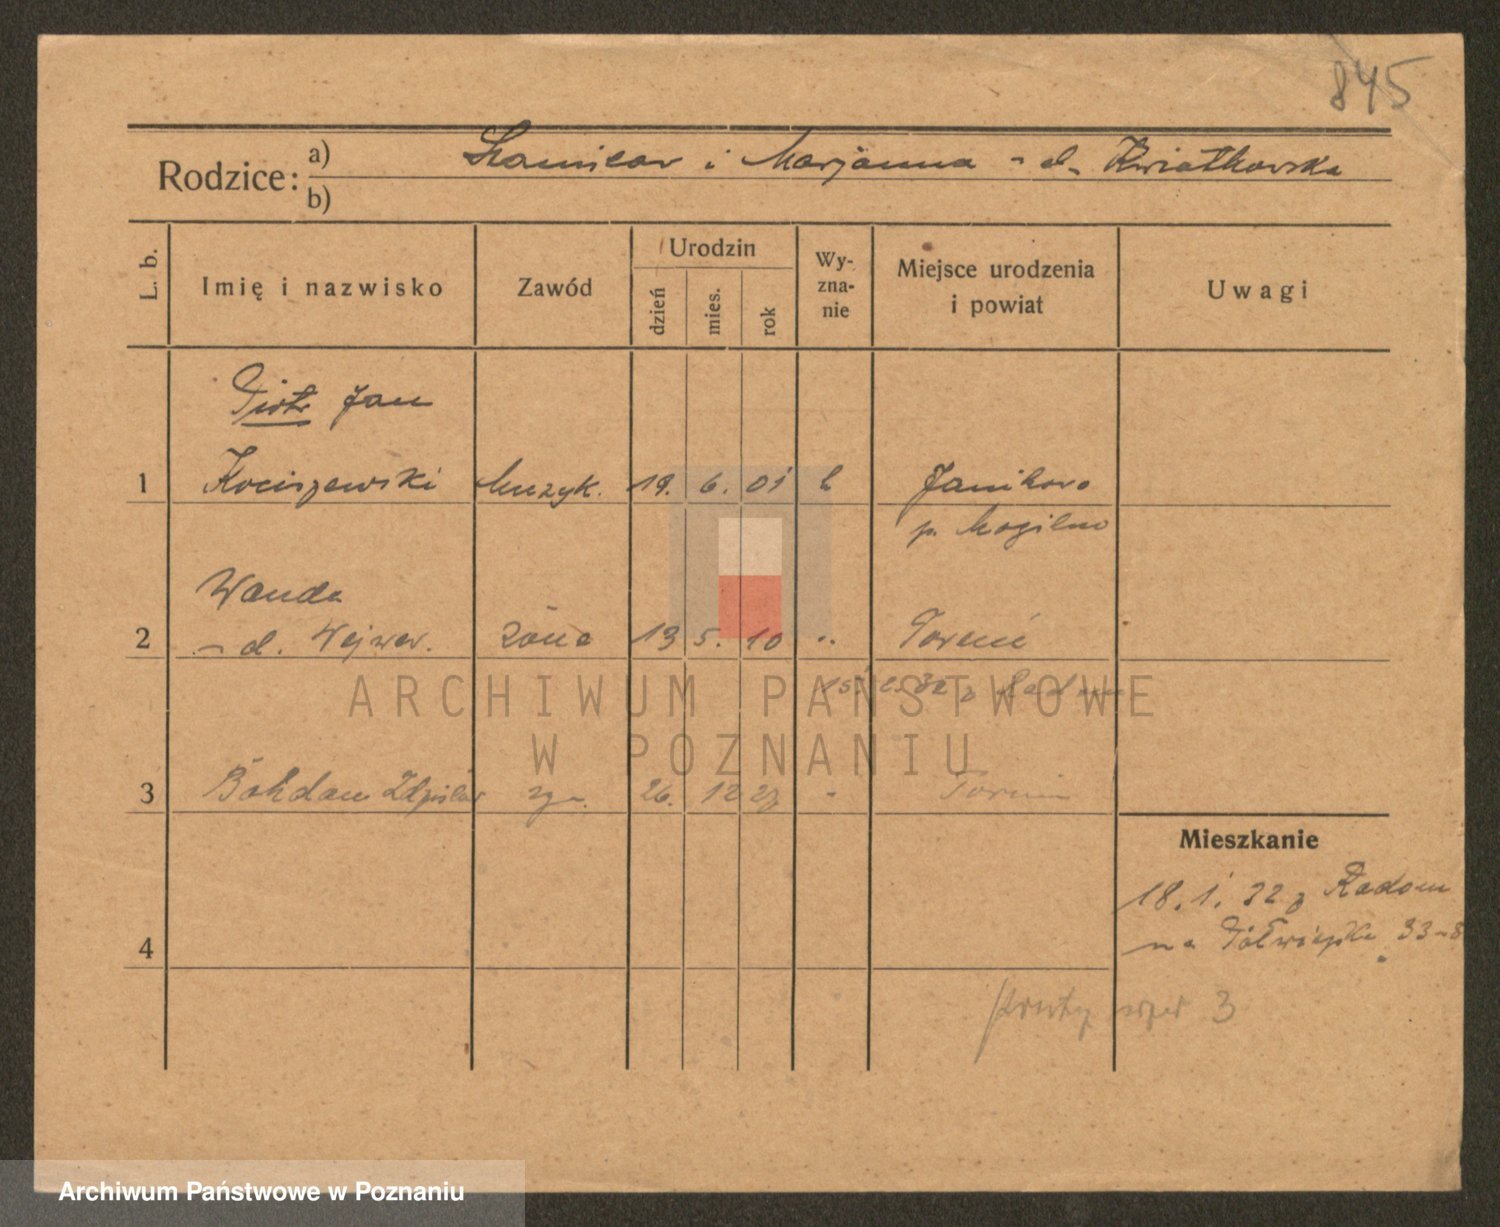 845
Rodzice: a) Stanisław i Marjanna - d. Kwiatkowska
b)
L. b. Imię i nazwisko Zawód Urodzin dzień mies. rok Wy-zna-nie Miejsce urodzenia i powiat Uwagi
Piotr Jan
1 Kociszewski Muzyk. 19. 6. 01 k Janikowo
p. Mogilno
Wanda
2 - d. Wejwer. żona 13 5. 10 ". Toruń
ARCHIWUM PAŃSTWOWE
W POZNANIU
3 Bohdan Zdzisław syn. 26. 12 27 " Toruń
Mieszkanie
18. 1. 32 z Radom
na Półwiejska 33-8
4
3
Archiwum Państwowe w Poznaniu